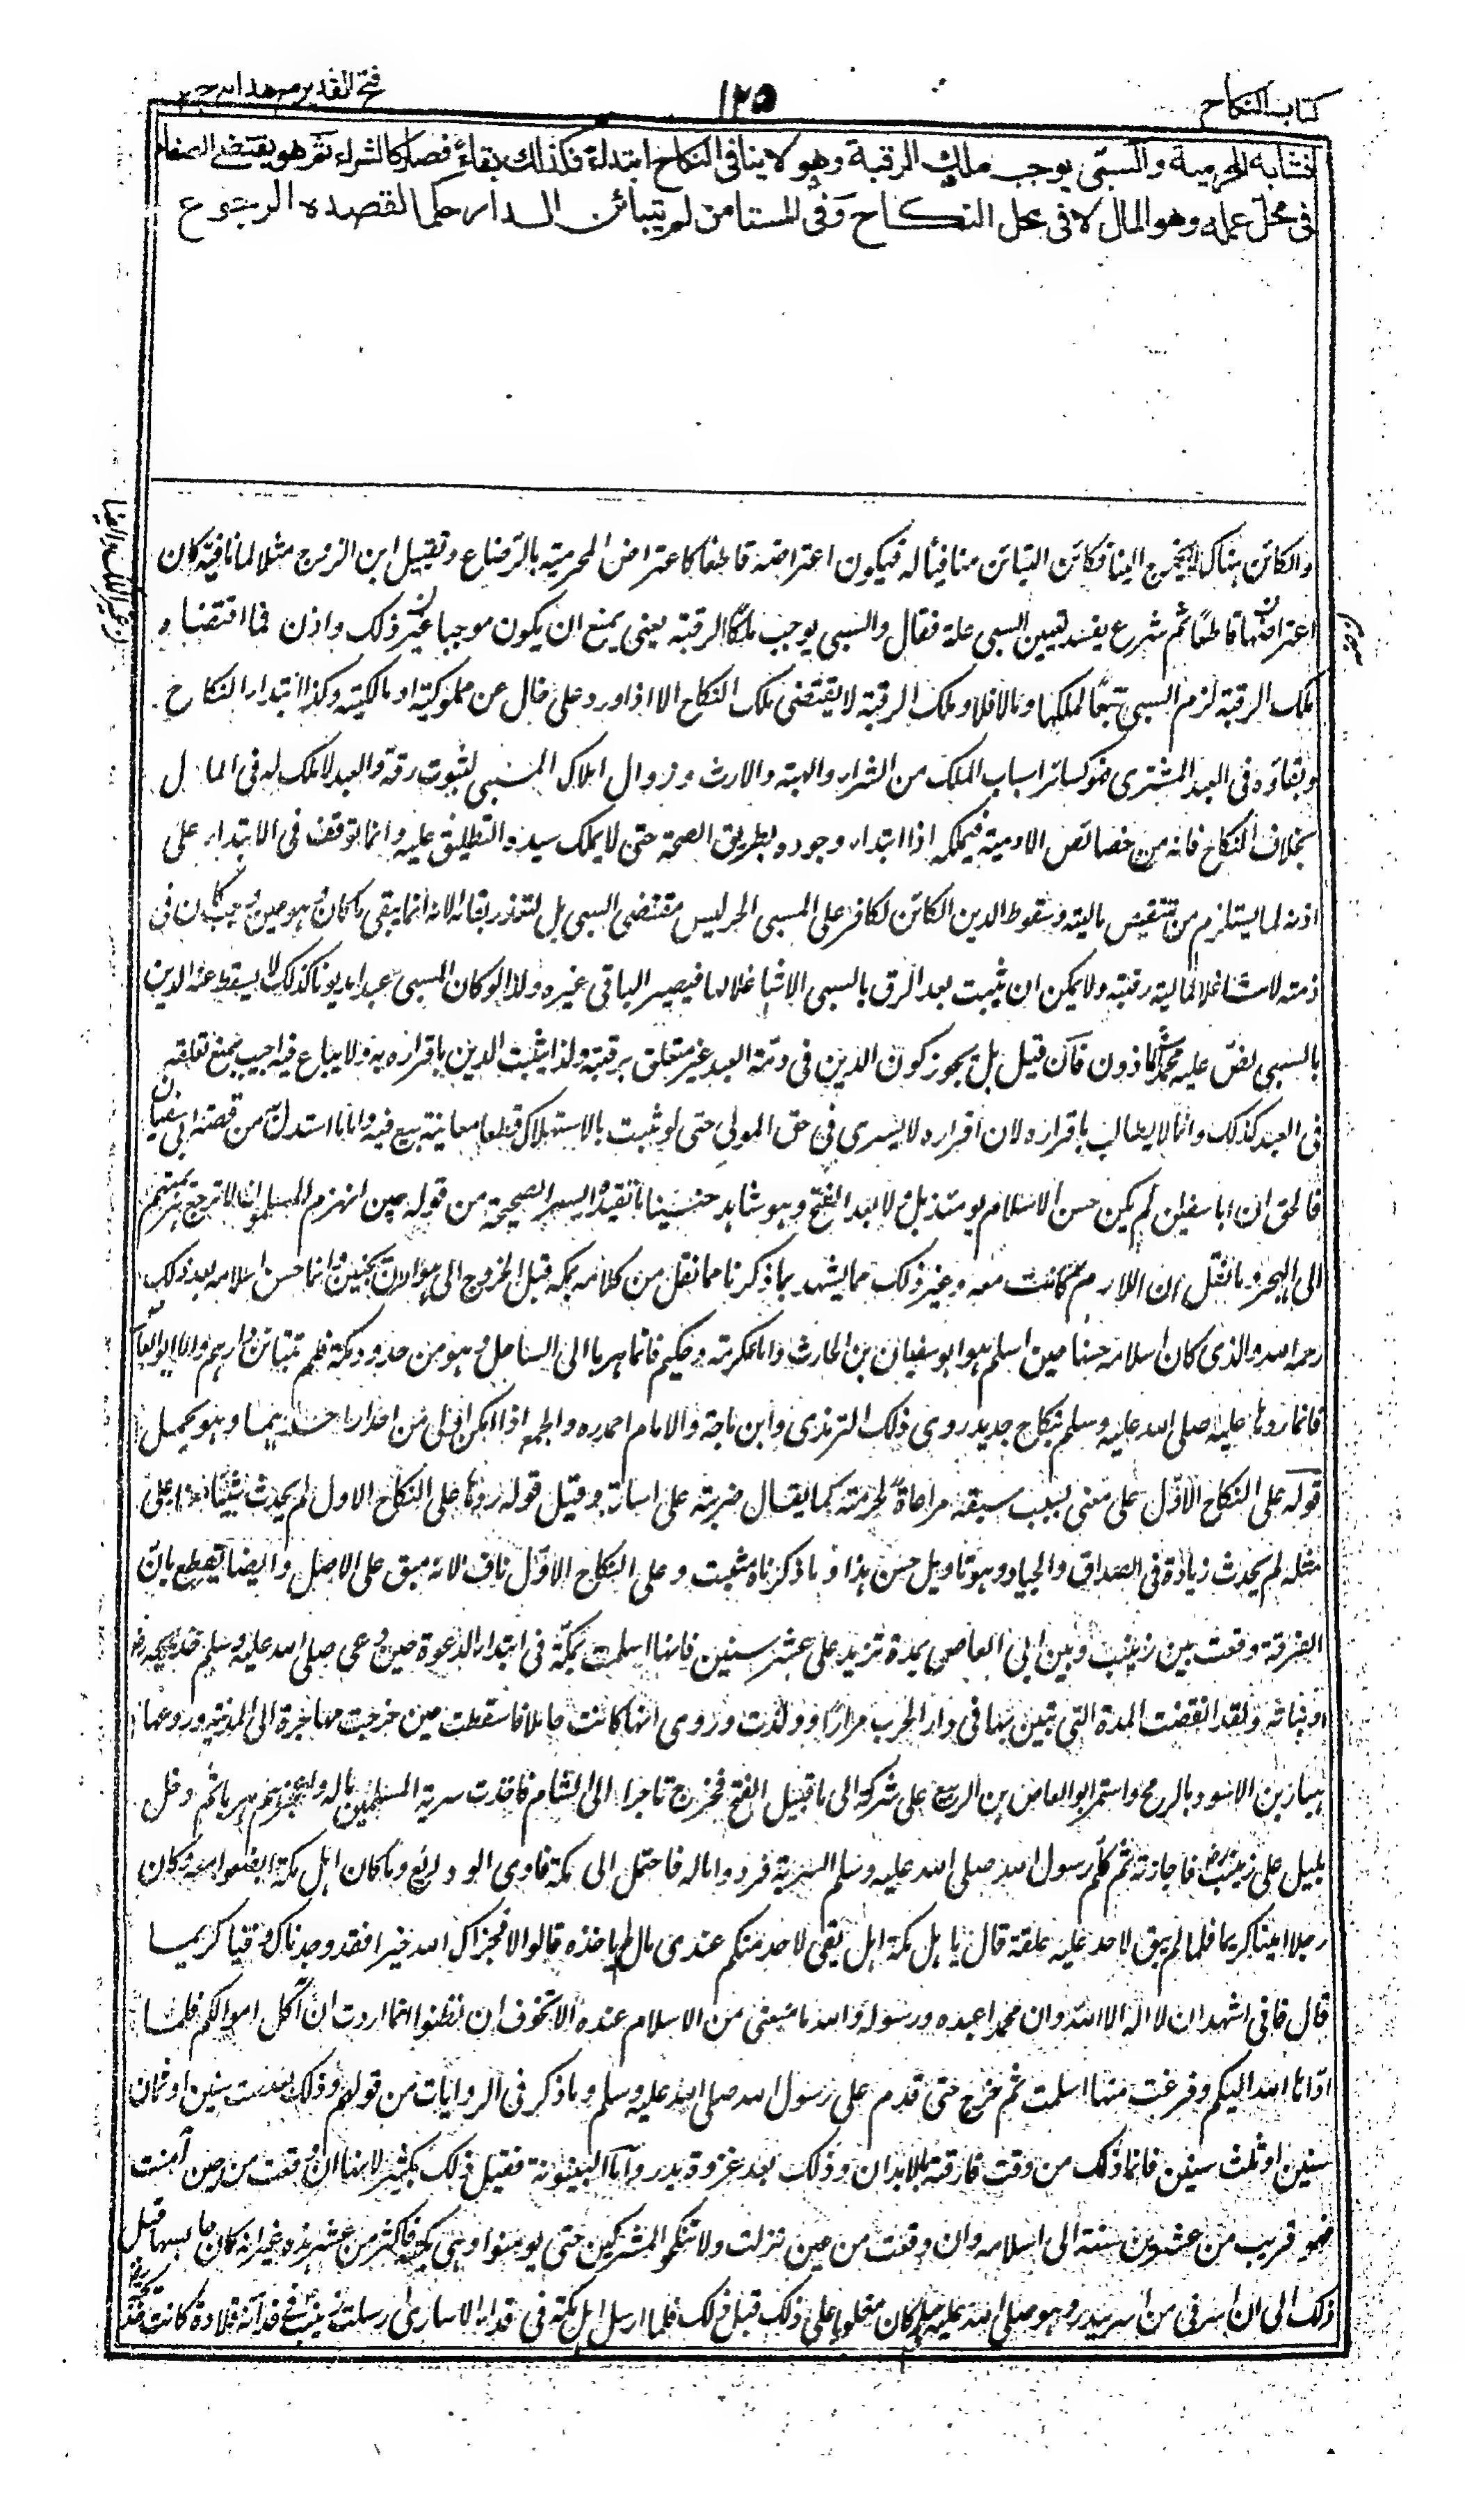 كتاب النكاح
١٢٥
فتح القدير مع هدايه
فشابه المحرمية والسبي يوجب ملك الرقبة وهو لا ينافى النكاح ابتداء فكذلك بقاء فصار كالشراء ثم هو يقتضى الصفاء
فى محل عمله وهو المال لا فى محل النكاح وفى المستامن لم يتبائن الدار حكما لقصده الرجوع
والكائن هناك لايخرج الينا فكان التبائن منافيا له فيكون اعتراضه قاطعا كاعتراض المحرمية بالرضاع وتقبيل ابن الزوج مثلا لما نافيته كان
اعتراضها قاطعا ثم شرع يفسد تعيين السبى علة فقال والسبى يوجب ملك الرقبة يعنى يمنع ان يكون موجبا غير ذلك واذن فما اقتضاه
ملك الرقبة لزم السبى تبعا لملكها وما لا فلا وملك الرقبة لا يقتضى ملك النكاح الا اذا ورد على خال عن مملوكية او مالكيته وكذا ابتداء النكاح
وبقاؤه فى العبد المشترى فهو كسائر اسباب الملك من الشراء والهبة والارث وزوال املاك المسبى لثبوت رقه والعبد لا ملك له فى المال
بخلاف النكاح فانه من خصائص الادمية فيملكه اذا ابتداء وجوده بطريق الصحة حتى لا يملك سيده التطليق عليه وانما توقف فى الابتداء على
اذنه لما يستلزم من تنقيص ماليته وسقوط الدين الكائن لكافر على المسبى الحر ليس مقتضى السبى بل لتعذر بقائه لانه انما يبقى ما كان وهو حين وجب كان فى
ذمته لا شاغلا لمالية رقبته ولا يمكن ان يثبت بعد الرق بالسبى الا شاغلا لها فيصير الباقى غيره ولذا لو كان المسبى عبدا مديونا كذلك لا يسقط عنه الدين
بالسبى نص عليه محمد فى الماذون فان قيل بل يجوز كون الدين فى ذمة العبد غير متعلق برقبته ولذا يثبت الدين باقراره به ولا يباع فيه اجيب بمنع تعلقه
فى العبد كذلك وانما لا يطالب باقراره لان اقراره لا يسرى فى حق المولى حتى لو ثبت بالاستهلاك قطعا معاينة بيع فيه واما ما استدل به من قصة ابى سفيان
فالحق ان ابا سفين لم يكن حسن الاسلام يومئذ بل ولا بعد الفتح وهو شاهد حنينا ما تفيده السير الصحيحة من قوله حين انهزم المسلمون لا ترجع هزيمتهم
الى البحر وما نقل ان الازلام كانت معه وغير ذلك مما يشهد بما ذكرنا مما نقل من كلامه بمكة قبل الخروج الى هوازن بحنين وانما حسن اسلامه بعد ذلك
رحمه الله والذى كان اسلامه حسنا حين اسلم هو ابو سفيان بن الحارث واما عكرمة وحكيم فانما هربا الى الساحل وهو من حدود مكة فلم تتبائن دارهم واما ابو العاص
فانما ردها عليه صلى الله عليه وسلم بنكاح جديد روى ذلك الترمذى وابن ماجة والامام احمد والجمع اذا امكن اولى من اهدار احدهما وهو بحمل
قوله على النكاح الاول على معنى بسبب سبقه مراعاة لحرمته كما يقال ضربته على اساءته وقيل قوله ردها على النكاح الاول لم يحدث شيئا معناه على
مثله لم يحدث زيادة فى الصداق والحباء وهو تاويل حسن هذا وما ذكرناه مثبت وعلى النكاح الاول ناف لانه مبق على الاصل وايضا يقطع بان
الفرقة وقعت بين زينب وبين ابى العاص بمدة تزيد على عشر سنين فانها اسلمت بمكة فى ابتداء الدعوة حين دعى صلى الله عليه وسلم خديجة رض
وبناته ولقد انقضت المدة التى تبين بها فى دار الحرب مرارا وولدت وروى انها كانت حاملا فاسقطت حين خرجت مهاجرة الى المدينة وروعها
هبار بن الاسود بالرمح واستمر ابو العاص بن الربيع على شركه الى ما قبيل الفتح فخرج تاجرا الى الشام فاخذت سرية المسلمين ماله واعجزهم هربا ثم دخل
بليل على زينب رض فاجارته ثم كلم رسول الله صلى الله عليه وسلم السرية فردوا ماله فاحتمل الى مكة فادى الودائع وما كان اهل مكة ابضعوا معه وكان
رجلا امينا كريما فلما لم يبق لاحد عليه علقة قال يا اهل مكة هل بقى لاحد منكم عندى مال لم ياخذه قالوا لا فجزاك الله خيرا فقد وجدناك وفيا كريما
قال فانى اشهد ان لا اله الا الله وان محمدا عبده ورسوله والله ما منعنى من الاسلام عنده الا تخوف ان تظنوا انما اردت ان آكل اموالكم فلما
اداها الله اليكم وفرغت منها اسلمت ثم خرج حتى قدم على رسول الله صلى الله عليه وسلم وما ذكر فى الروايات من قولهم وذلك بعد ست سنين او ثمان
سنين او ثلث سنين فانما ذلك من وقت فارقته بالابدان وذلك بعد غزوة بدر واما البينونة فقبل ذلك بكثير لانها ان وقعت من حين آمنت
فهو قريب من عشرين سنة الى اسلامه وان وقعت من حين نزلت ولا تنكحوا المشركين حتى يومنوا وهى مكية فاكثر من عشر هذا غير انه كان حابسها قبل
ذلك الى ان اسر فى من اسر ببدر وهو صلى الله عليه وسلم كان مغلوبا على ذلك قبل ذلك فلما ارسل اهل مكة فى فداء الاسارى ارسلت زينب فى فدائه قلادة كانت خديجة